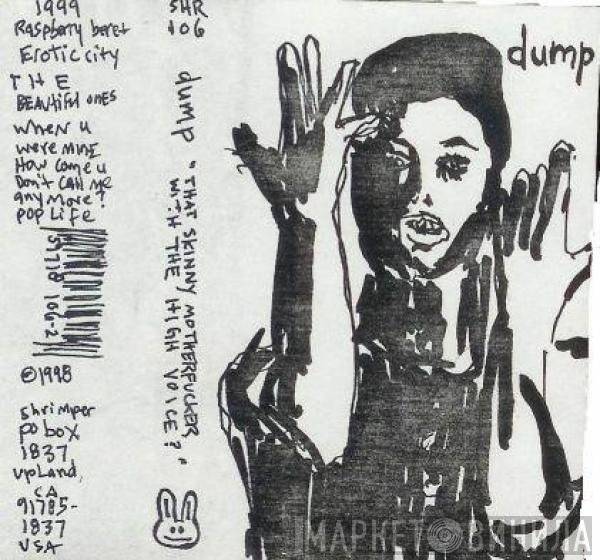 1999
Raspberry beret
Erotic city
THE
BEAUTIFUL ONES
When u
were mine
How come u
Don't call me
anymore?
POP LIFE
51718 106-2
©1998
shrimper
po box
1837
upland,
CA
91785-
1837
USA
SHR
106
dump "THAT SKINNY MOTHERFUCKER
WITH THE HIGH VOICE?"
dump
МАРКЕТ ВИНИЛА